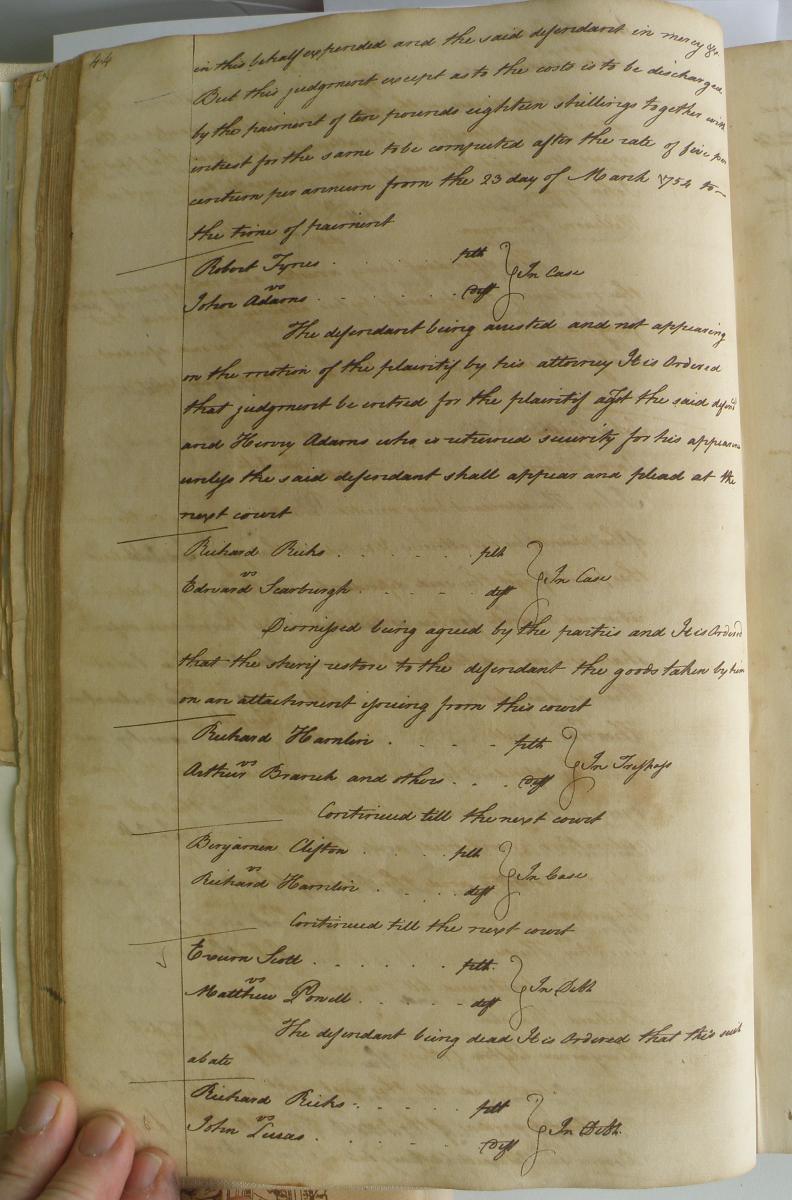 44
in this behalf expended and the said defendant in mercy &c.
But this judgment except as to the costs is to be discharged
by the paiment of ten pounds eighteen shillings together with
intrest for the same to be computed after the rate of five per
centum per annum from the 23 day of March 1754 to
the time of paiment
Robert Tynes . . . . plt
vs } In Case
John Adams . . . . Deft
The defendant being arrested and not appearing
on the motion of the plaintif by his attorney It is Ordered
that judgment be entred for the plaintif agst the said defend
and Henry Adams who is returned security for his appearance
unless the said defendant shall appear and plead at the
next court
Richard Ricks . . . . plt
vs } In Case
Edward Scarburgh . . . . deft
Dismissed being agreed by the parties and It is Ordered
that the sherif restore to the defendant the goods taken by him
on an attachment issuing from this court
Richard Hamlin . . . . plt
vs } In Trespass
Arthur Branch and others . . . Deft
Continued till the next court
Benjamen Clifton . . . . plt
vs } In Case
Richard Hamlin . . . . deft
Continued till the next court
Exum Scott . . . . plt
vs } In Debt
Matthew Powell . . . . deft
The defendant being dead It is Ordered that this suit
abate
Richard Ricks . . . . plt
vs } In Debt
John Lucas . . . . Deft